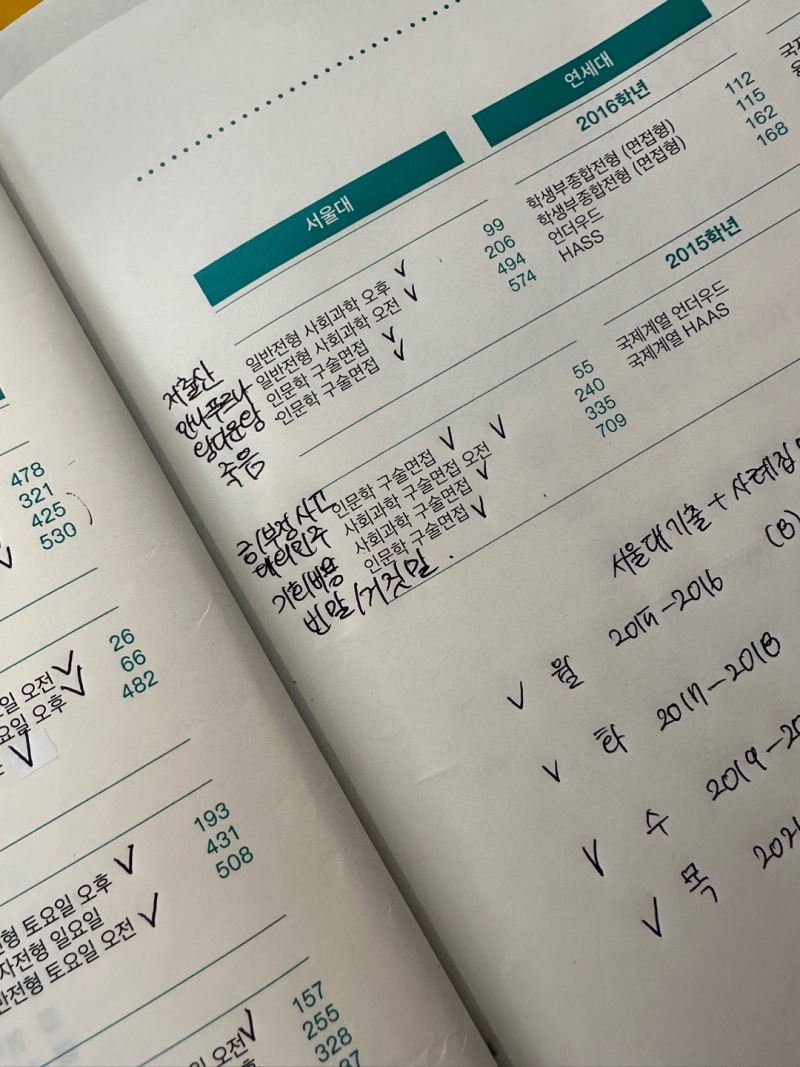 478
321
425
530
일 오전 V
26
요일 오후 V
66
V
482
193
전형 토요일 오후 V
431
자전형 일요일
508
반전형 토요일 오전 V
157
일 오전 V
255
328
서울대
연세대
2016학년
저출산
일반전형 사회과학 오후 V
99
안나푸르나
일반전형 사회과학 오전 V
206
인문학 구술면접 V
494
죽음
인문학 구술면접 V
574
학생부종합전형 (면접형)
112
학생부종합전형 (면접형)
115
언더우드
162
HASS
168
2015학년
인문학 구술면접 V
55
대의민주
사회과학 구술면접 오전 V
240
기회비용
사회과학 구술면접 V
335
빈말/거짓말.
인문학 구술면접 V
709
국제계열 언더우드
국제계열 HAAS
서울대 기출 + 사례집
(B)
V 월 2015-2016
V 화 2017-2018
V 수 2019-20
V 목 202